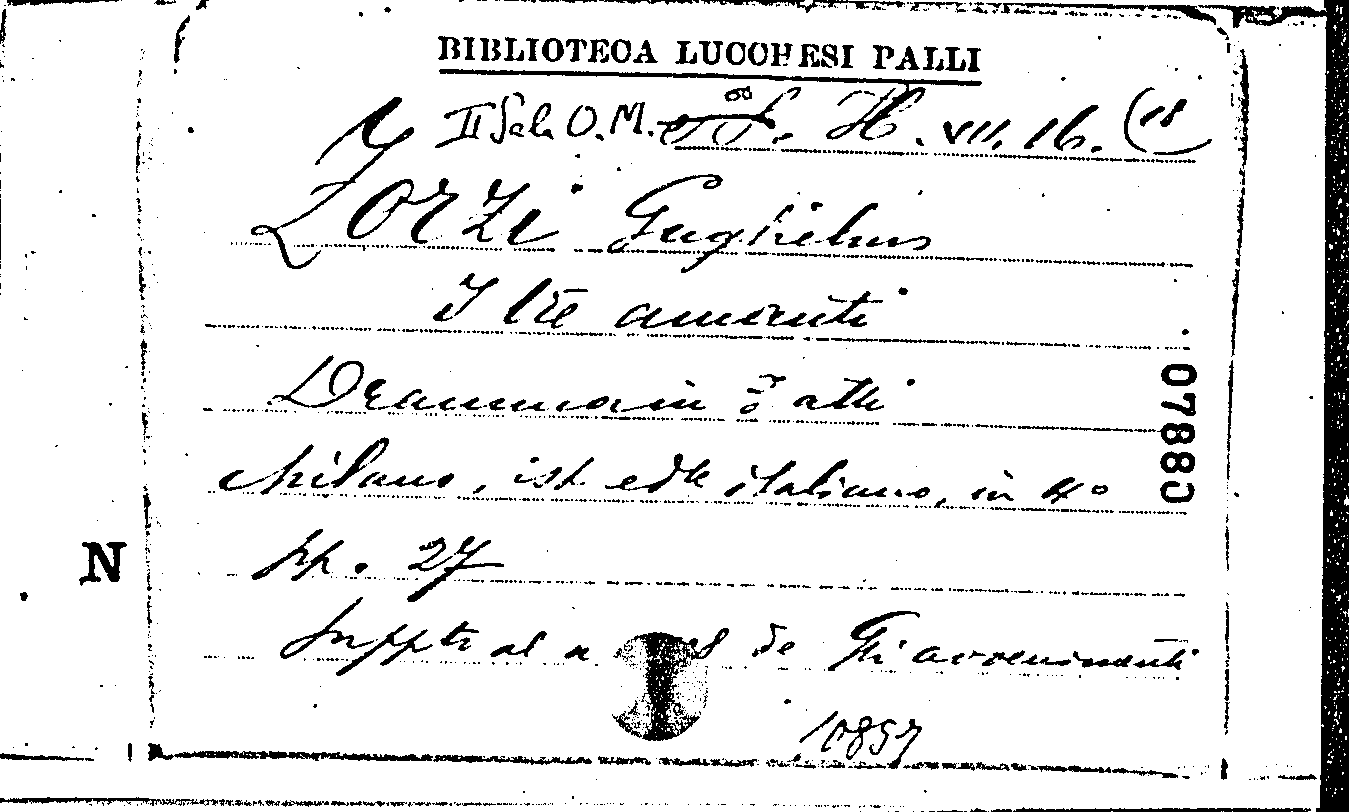 BIBLIOTECA LUCCHESI PALLI
II Sala O.M. H. VII. 16. (18
ZORZI Guglielmo
I tre amanti
Dramma in 3 atti
Milano, ist. edit. italiano, in 4°
pp. 27
Suppte al n de Gli avvenimenti
10857
07880
N